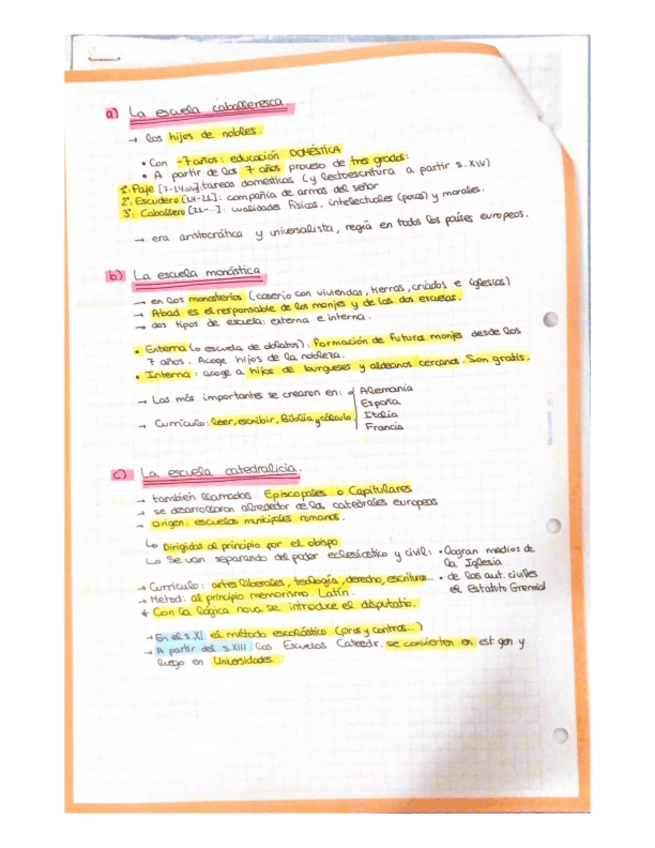 a) La escuela caballeresca
→ los hijos de nobles.
• Con -7 años: educación DOMÉSTICA
• A partir de los 7 años proceso de tres grados:
1º: Paje [7-14 años]: tareas domésticas (y lectoescritura a partir s. XIV)
2º: Escudero [14-21]: compañía de armas del señor
3º: Caballero [21-...]: cualidades físicas, intelectuales (pocas) y morales.
→ era aristocrática y universalista, regía en todos los países europeos.
b) La escuela monástica
→ en los monasterios (caserío con viviendas, tierras, criados e iglesias)
→ Abad es el responsable de los monjes y de las dos escuelas.
→ dos tipos de escuela: externa e interna.
• Externa (o escuela de oblatos): formación de futuros monjes desde los
7 años. Acoge hijos de la nobleza.
• Interna: acoge a hijos de burgueses y aldeanos cercanos. Son gratis.
→ Las más importantes se crearon en:
Alemania
España
Italia
Francia
→ Currículo: leer, escribir, Biblia y cálculo
c) La escuela catedralicia.
→ también llamadas Episcopales o Capitulares
→ se desarrollaron alrededor de las catedrales europeas
→ Origen: escuelas municipales romanas.
↳ Dirigidas al principio por el obispo
↳ Se van separando del poder eclesiástico y civil:
• logran medios de
la Iglesia
• de las aut. civiles
el Estatuto Gremial
→ Currículo: artes liberales, teología, derecho, escritura...
→ Metod: al principio memorismo. Latín.
* Con la lógica nova se introduce el disputatio.
→ En el s. XI el método escolástico (pros y contras...)
→ A partir del s. XIII las Escuelas Catedr. se convierten en est. gen y
luego en Universidades